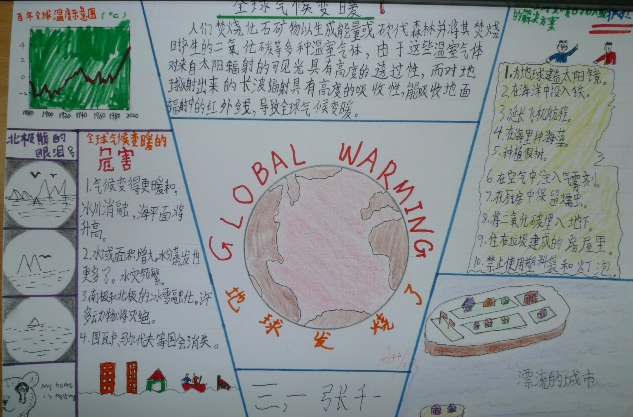 百年全球温度示意图(°C)
1880 1900 1920 1940 1960 1980 2000
全球气候变暖
人们焚烧化石矿物以生成能量或砍伐森林并将其焚烧
时产生的二氧化碳等多种温室气体,由于这些温室气体
对来自太阳辐射的可见光具有高度的透过性,而对地
球反射出来的长波辐射具有高度的吸收性,能吸收地面
辐射中的红外线,导致全球气候变暖。
的解决方案
1.为地球建造太阳伞。
2.在海洋中投入铁。
3.延长飞机航程。
4.在海里种海藻。
5.种植假树。
6.在空气中注入气雾剂。
7.在厨房中保留蟑虫。
8.将二氧化碳埋入地下。
9.住在垃圾建成的房屋里。
10.禁止使用塑料袋和灯泡
北极熊的
眼泪
全球气候变暖的
危害
1.气候变得更暖和,
冰川消融,海平面将
升高。
2.水域面积增大。水分蒸发也
更多了。水灾频繁。
3.南极和北极的冰雪融化。许
多动物将灭绝。
4.图瓦卢、马尔代夫等国会消失。
GLOBAL WARMING
地球发烧了
A++
my home is
三,一 张千一
漂流的城市